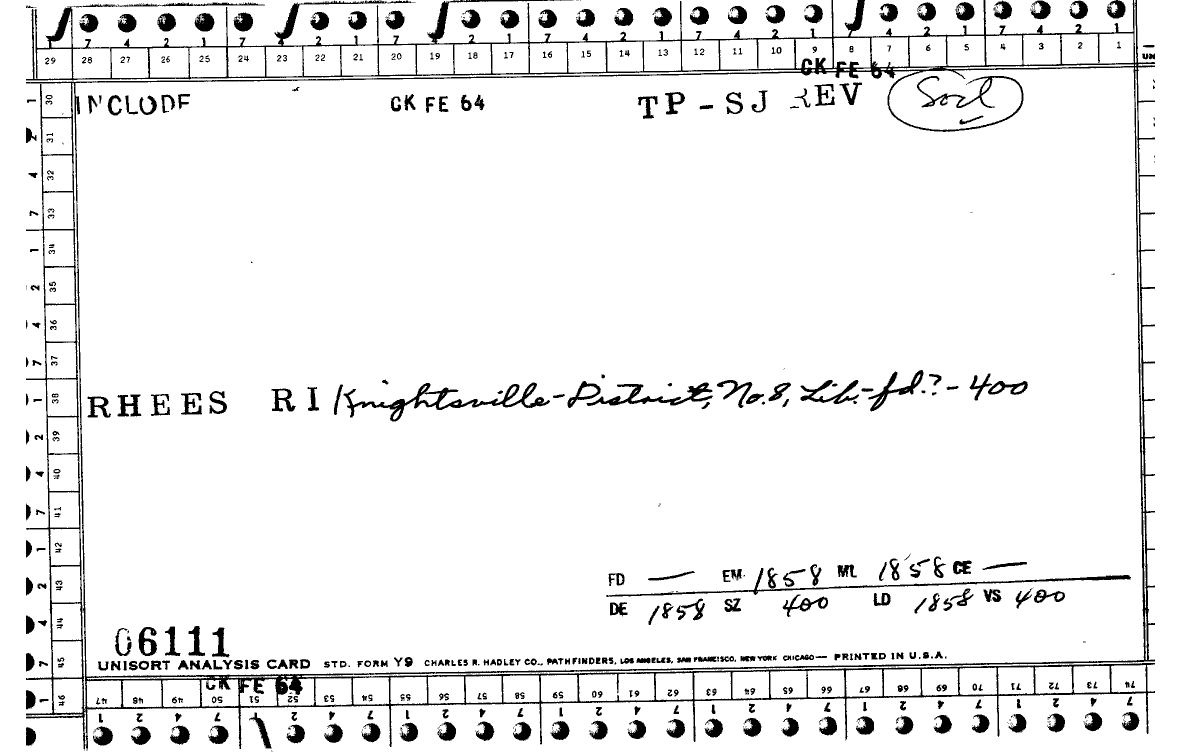 7 4 2 1 7 4 2 1 7 4 2 1 7 4 2 1 7 4 2 1 7 4 2 1 7 4 2 1
29 28 27 26 25 24 23 22 21 20 19 18 17 16 15 14 13 12 11 10 9 8 7 6 5 4 3 2 1
CK FE 64
INCLUDE CK FE 64 TP-SJ REV Socl
30 31 32 33 34 35 36 37 38 39 40 41 42 43 44 45 46
1 2 4 7 1 2 4 7 1 2 4 7 1 2 4 7 1
RHEES RI Knightsville-District, No. 8, Lib.-fd.?-400
FD — EM 1858 ML 1858 CE —
DE 1858 SZ 400 LD 1858 VS 400
06111
UNISORT ANALYSIS CARD STD. FORM Y9 CHARLES R. HADLEY CO., PATHFINDERS, LOS ANGELES, SAN FRANCISCO, NEW YORK CHICAGO— PRINTED IN U.S.A.
CK FE 64
47 48 49 50 51 52 53 54 55 56 57 58 59 60 61 62 63 64 65 66 67 68 69 70 71 72 73 74
1 2 4 7 1 2 4 7 1 2 4 7 1 2 4 7 1 2 4 7 1 2 4 7 1 2 4 7